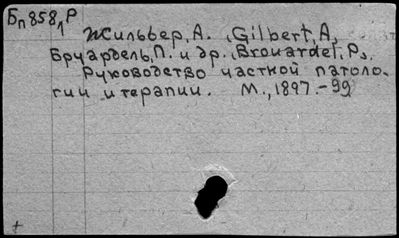 Бп858,Р
Жильбер, А. (Gilbert, A,
Бруардель, П. и др. (Brouardel, P.).
Руководство частной патоло-
гии и терапии. М., 1897.-99
+